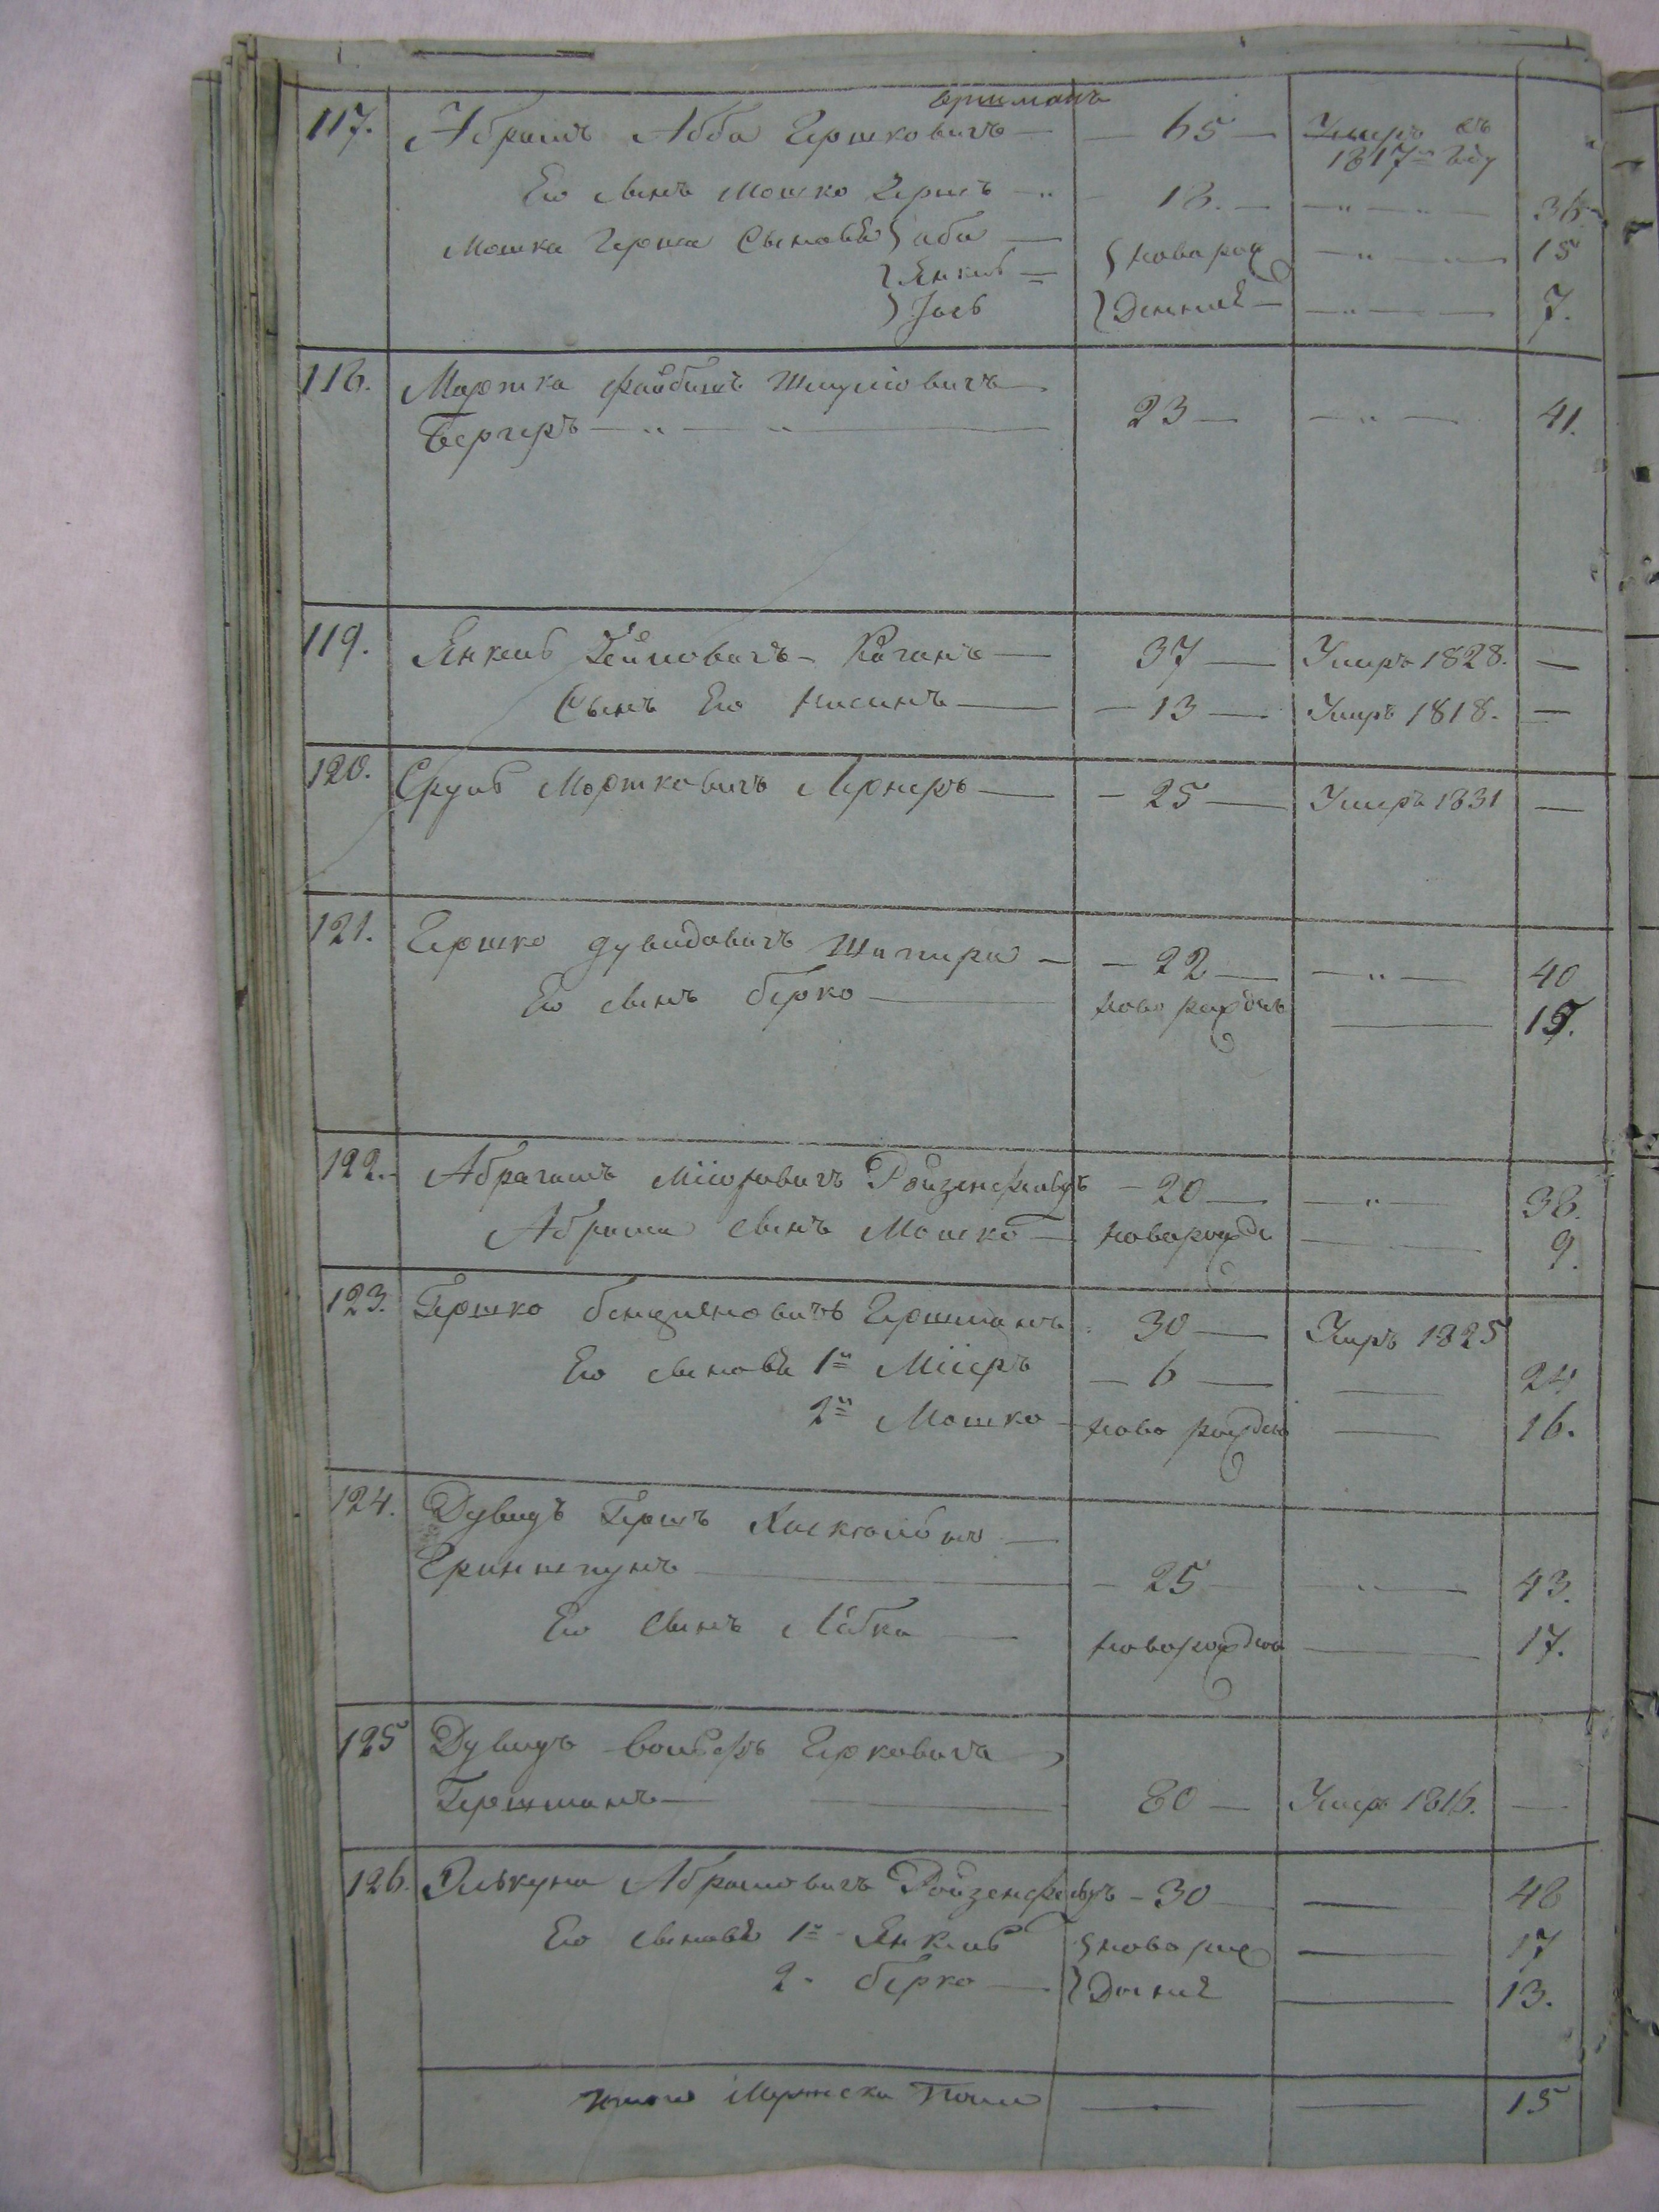 117. Абрамъ Абба Гершковичъ — 65 — Умеръ въ
1817м году
Его сынъ Мошко Гершъ — 18. — 36
Мошка Герша Сыновья } аба — } новорож — 15
} Янкель
} Іось } Денныя — 7.
118. Мортка Файбишъ Шмулiовичъ
Бергеръ — 23 — 41.
119. Янкель Хаимовичъ Каганъ — 37 — Умеръ 1828. —
Сынъ Его Нисанъ — 13 — Умеръ 1818. —
120. Сруль Мортковичъ Лернеръ — 25 — Умеръ 1831 —
121. Гершко Дувидовичъ Шапира — 22 — 40
Его сынъ берко — новорожденъ — 15.
122. Абрагамъ Мошковичъ Ройзенфельдъ — 20 — 38.
Абрама сынъ Мошко — новорожде — 9.
123. Гершко бенцiяновичъ Гершманъ 30 — Умеръ 1825
Его сыновья 1й Мiеръ — 6 — 24
2й Мошко — новорожден — 16.
124. Дувидъ Гершъ
Гриншпунъ — 25 — 43.
Его Сынъ Лейбка — новорожден — 17.
125 Дувидъ Вольфъ Герковичъ
Гершманъ — 80 — Умеръ 1816. —
126. Элькуна Абрамовичъ Ройзенфельдъ — 30 — 48
Его сыновья 1й Янкель } новорож — 17
2. берко — } Денныя — 13.
Итого Мужеска Пола — — 15